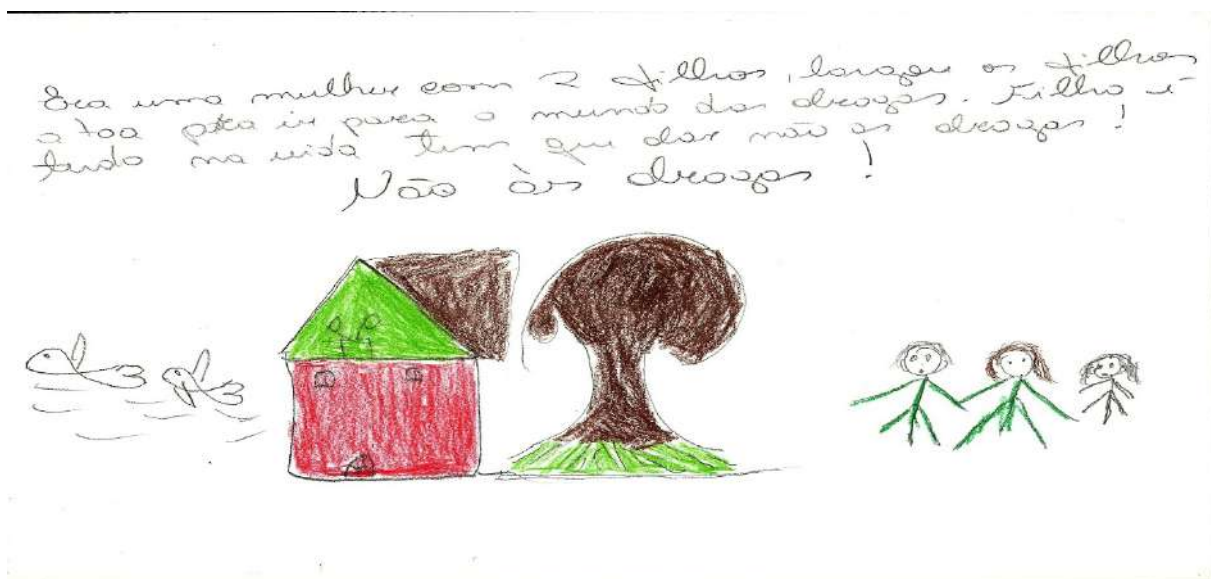 Era uma mulher com 2 filhos, largou os filhos
a toa pra ir para o mundo das drogas. Filho é
tudo na vida tem que dar não as drogas!
Não às drogas!